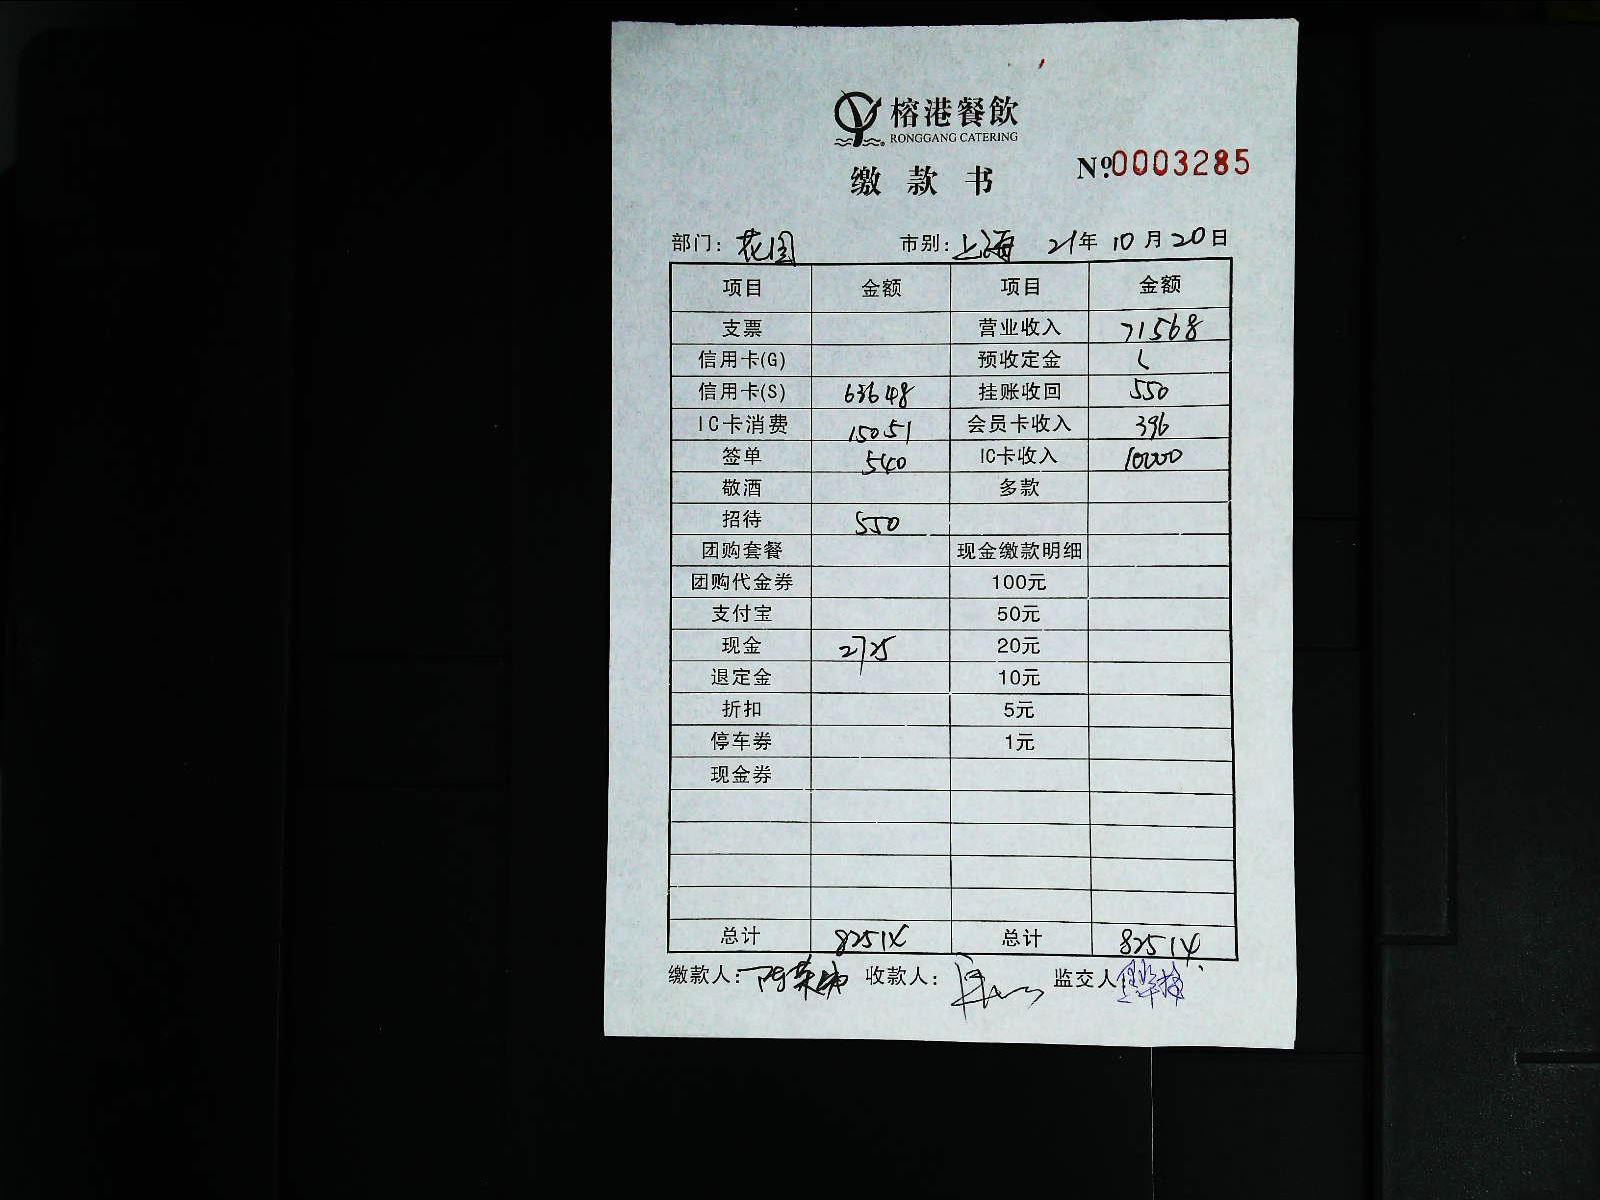 榕港餐飲
RONGGANG CATERING
缴款书
Nº.0003285
部门: 花园 市别: 上海 21年 10月 20日
项目 金额 项目 金额
支票 营业收入 71568
信用卡(G) 预收定金
信用卡(S) 63648 挂账收回 550
IC卡消费 15051 会员卡收入 396
签单 540 IC卡收入 10000
敬酒 多款
招待 550
团购套餐 现金缴款明细
团购代金券 100元
支付宝 50元
现金 2725 20元
退定金 10元
折扣 5元
停车券 1元
现金券
总计 82514 总计 82514
缴款人: 收款人: 监交人: